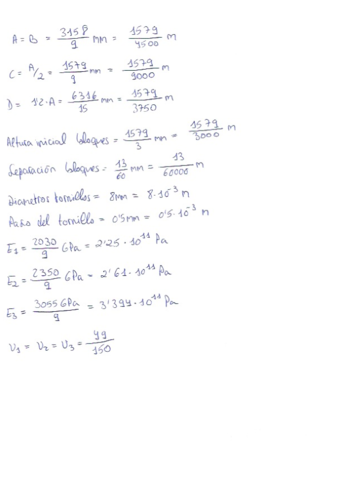 A = B = 3158/9 mm = 1579/4500 m
C = A/2 = 1579/9 mm = 1579/9000 m
D = 1'2·A = 6316/15 mm = 1579/3750 m
Altura inicial bloques = 1579/3 mm = 1579/3000 m
Separación bloques = 13/60 mm = 13/60000 m
Diámetros tornillos = 8mm = 8·10^-3 m
Paso del tornillo = 0'5mm = 0'5·10^-3 m
E1 = 2030/9 GPa = 2'25·10^11 Pa
E2 = 2350/9 GPa = 2'61·10^11 Pa
E3 = 3055 GPa/9 = 3'394·10^11 Pa
υ1 = υ2 = υ3 = 49/150